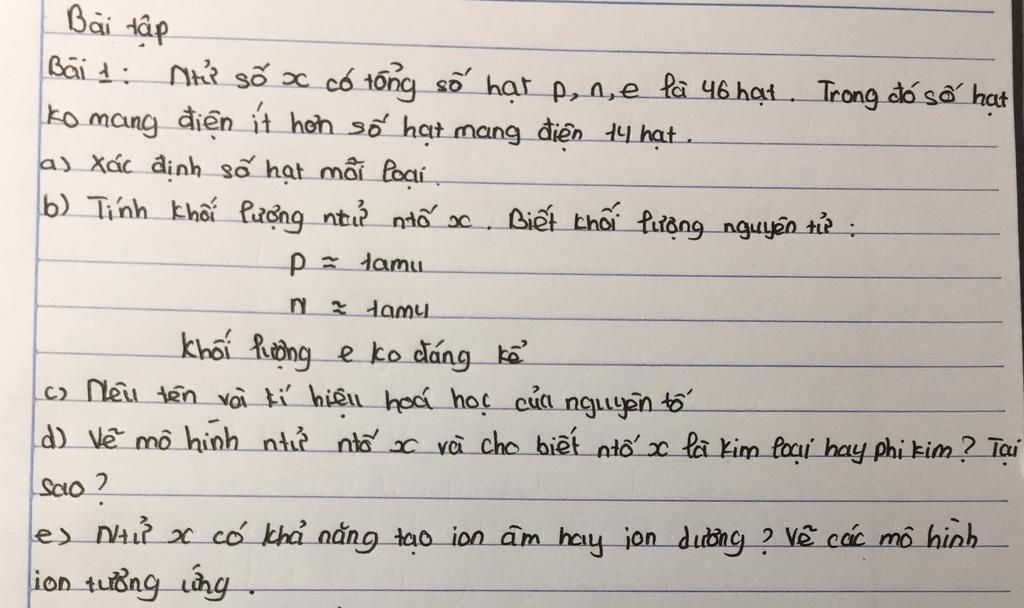 Bài tập
Bài 1: Ntử số x có tổng số hạt p, n, e là 46 hạt. Trong đó số hạt
ko mang điện ít hơn số hạt mang điện 14 hạt.
a) Xác định số hạt mỗi loại.
b) Tính khối lượng ntử ntố x. Biết khối lượng nguyên tử:
p ≈ 1amu
n ≈ 1amu
khối lượng e ko đáng kể
c) Nêu tên và kí hiệu hoá học của nguyên tố
d) Vẽ mô hình ntử ntố x và cho biết ntố x là kim loại hay phi kim? Tại
sao?
e) Ntử x có khả năng tạo ion âm hay ion dương? Vẽ các mô hình
ion tương ứng.